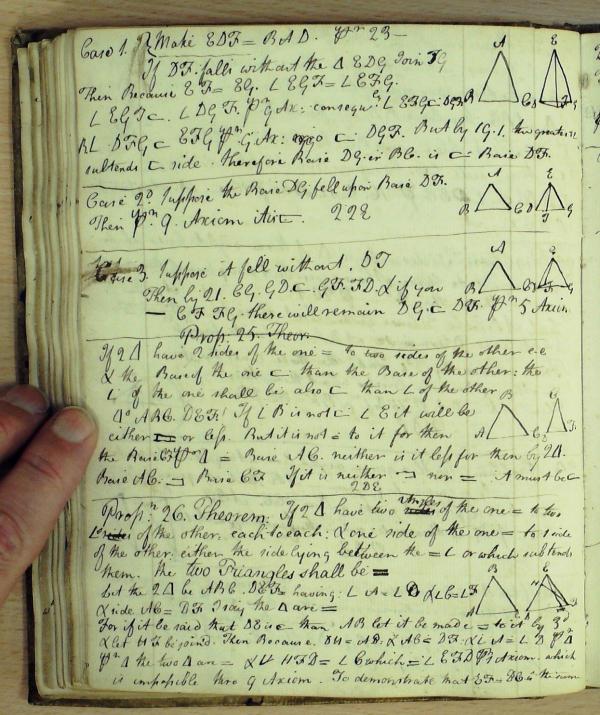 Case 1. Make EDF = BAD. pr 23
If DF falls without the Δ EDG Join FG
Then Because EF = EG. ∠ EGF = ∠ EFG.
∠ EGF ⊏ ∠ DGF. pr 9 Ax: consequ ∠ EFG ⊏ DGF
But DFG ⊏ EFG pr 9 Ax: ergo ⊏ DGF. But by 19.1. the greater
subtends ⊏ side. Therefore Base DG or BC. is ⊏ Base DF.
Case 2d Suppose the Base DG fell upon Base DF.
Then pr 9. Axiom it is ⊏. 2 2 E
Case 3 Suppose it fell without. DF
Then by 21. EG. GD ⊏. GF. FD. & if you
— EF FG. there will remain DG ⊏ DF. pr 5 Axiom
Prop: 25. Theor:
If 2 Δ have 2 sides of the one = to two sides of the other e.e
& the Base of the one ⊏ than the Base of the other: the
∠ of the one shall be also ⊏ than ∠ of the other
Δs ABC. DEF. If ∠ B is not ⊏ ∠ E it will be
either = or less. But it is not = to it for then
the Base Δ = Base AC. neither is it less for then by 24.
Base AC. ⊐ Base EF If it is neither ⊐ nor = it must be ⊏
2 D E
Propn: 26. Theorem: If 2 Δ have two Angles of the one = to two
∠ of the other. each to each: & one side of the one = to 1 side
of the other. either the side lying between the = ∠ or which subtends
them. the two Triangles shall be =
Let the 2 Δ be ABC. DEF having: ∠ A = ∠ D & ∠ C = ∠ F
& side AC = DF I say the Δ are =
For if it be said that DE is ⊏ than AB let it be made = to it by 3d
& let HF be joined. Then Because. DH = AB: & AC = DF: & ∠ A = ∠ D
pr Δ the two Δ are = & ∠ HFD = ∠ C which = ∠ EFD pr Axiom. which
is impossible thro 9 Axiom. To demonstrate that EF = BC is the same